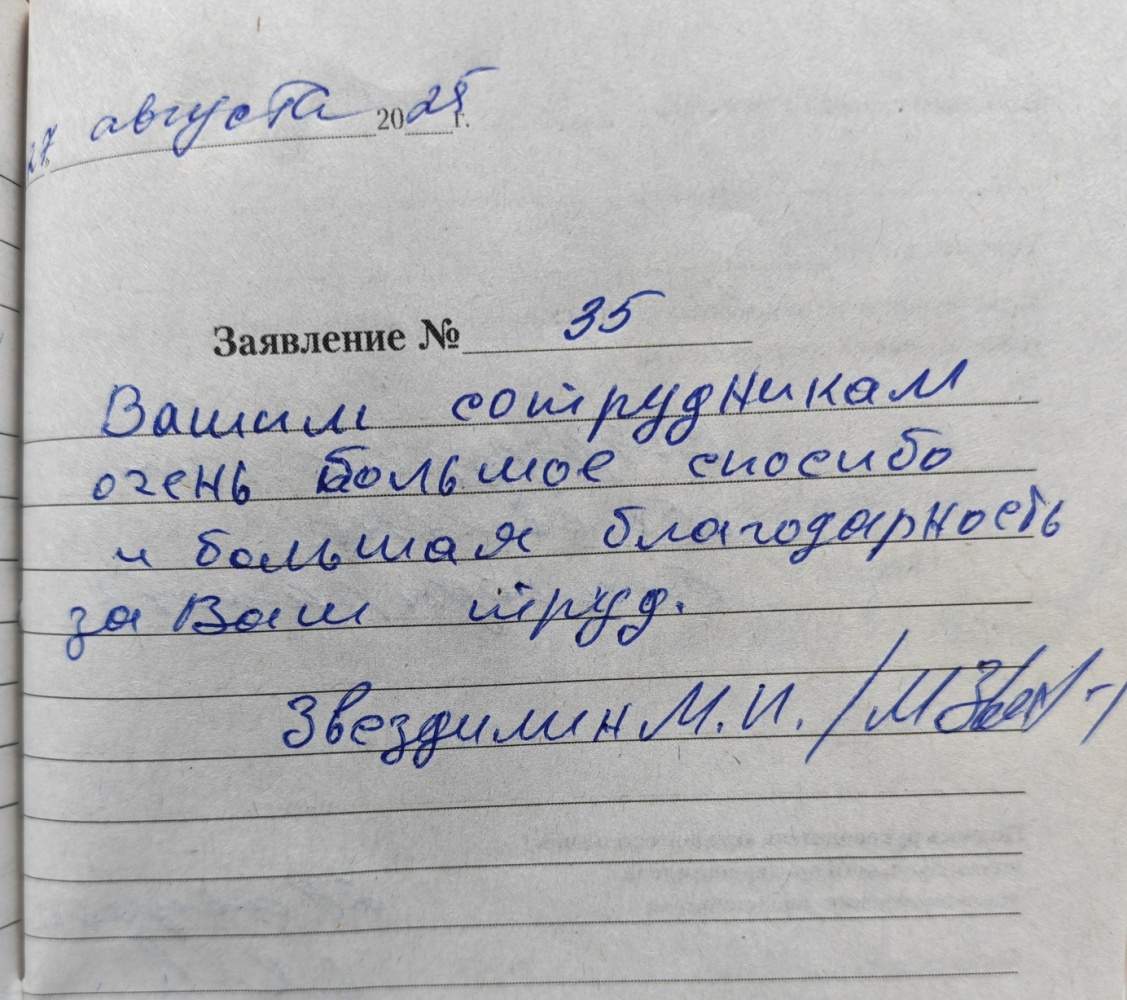 27 августа 2025 г.
Заявление № 35
Вашим сотрудникам
очень большое спосибо
и большая благодарность
за Ваш труд.
Звездилин М.И. /